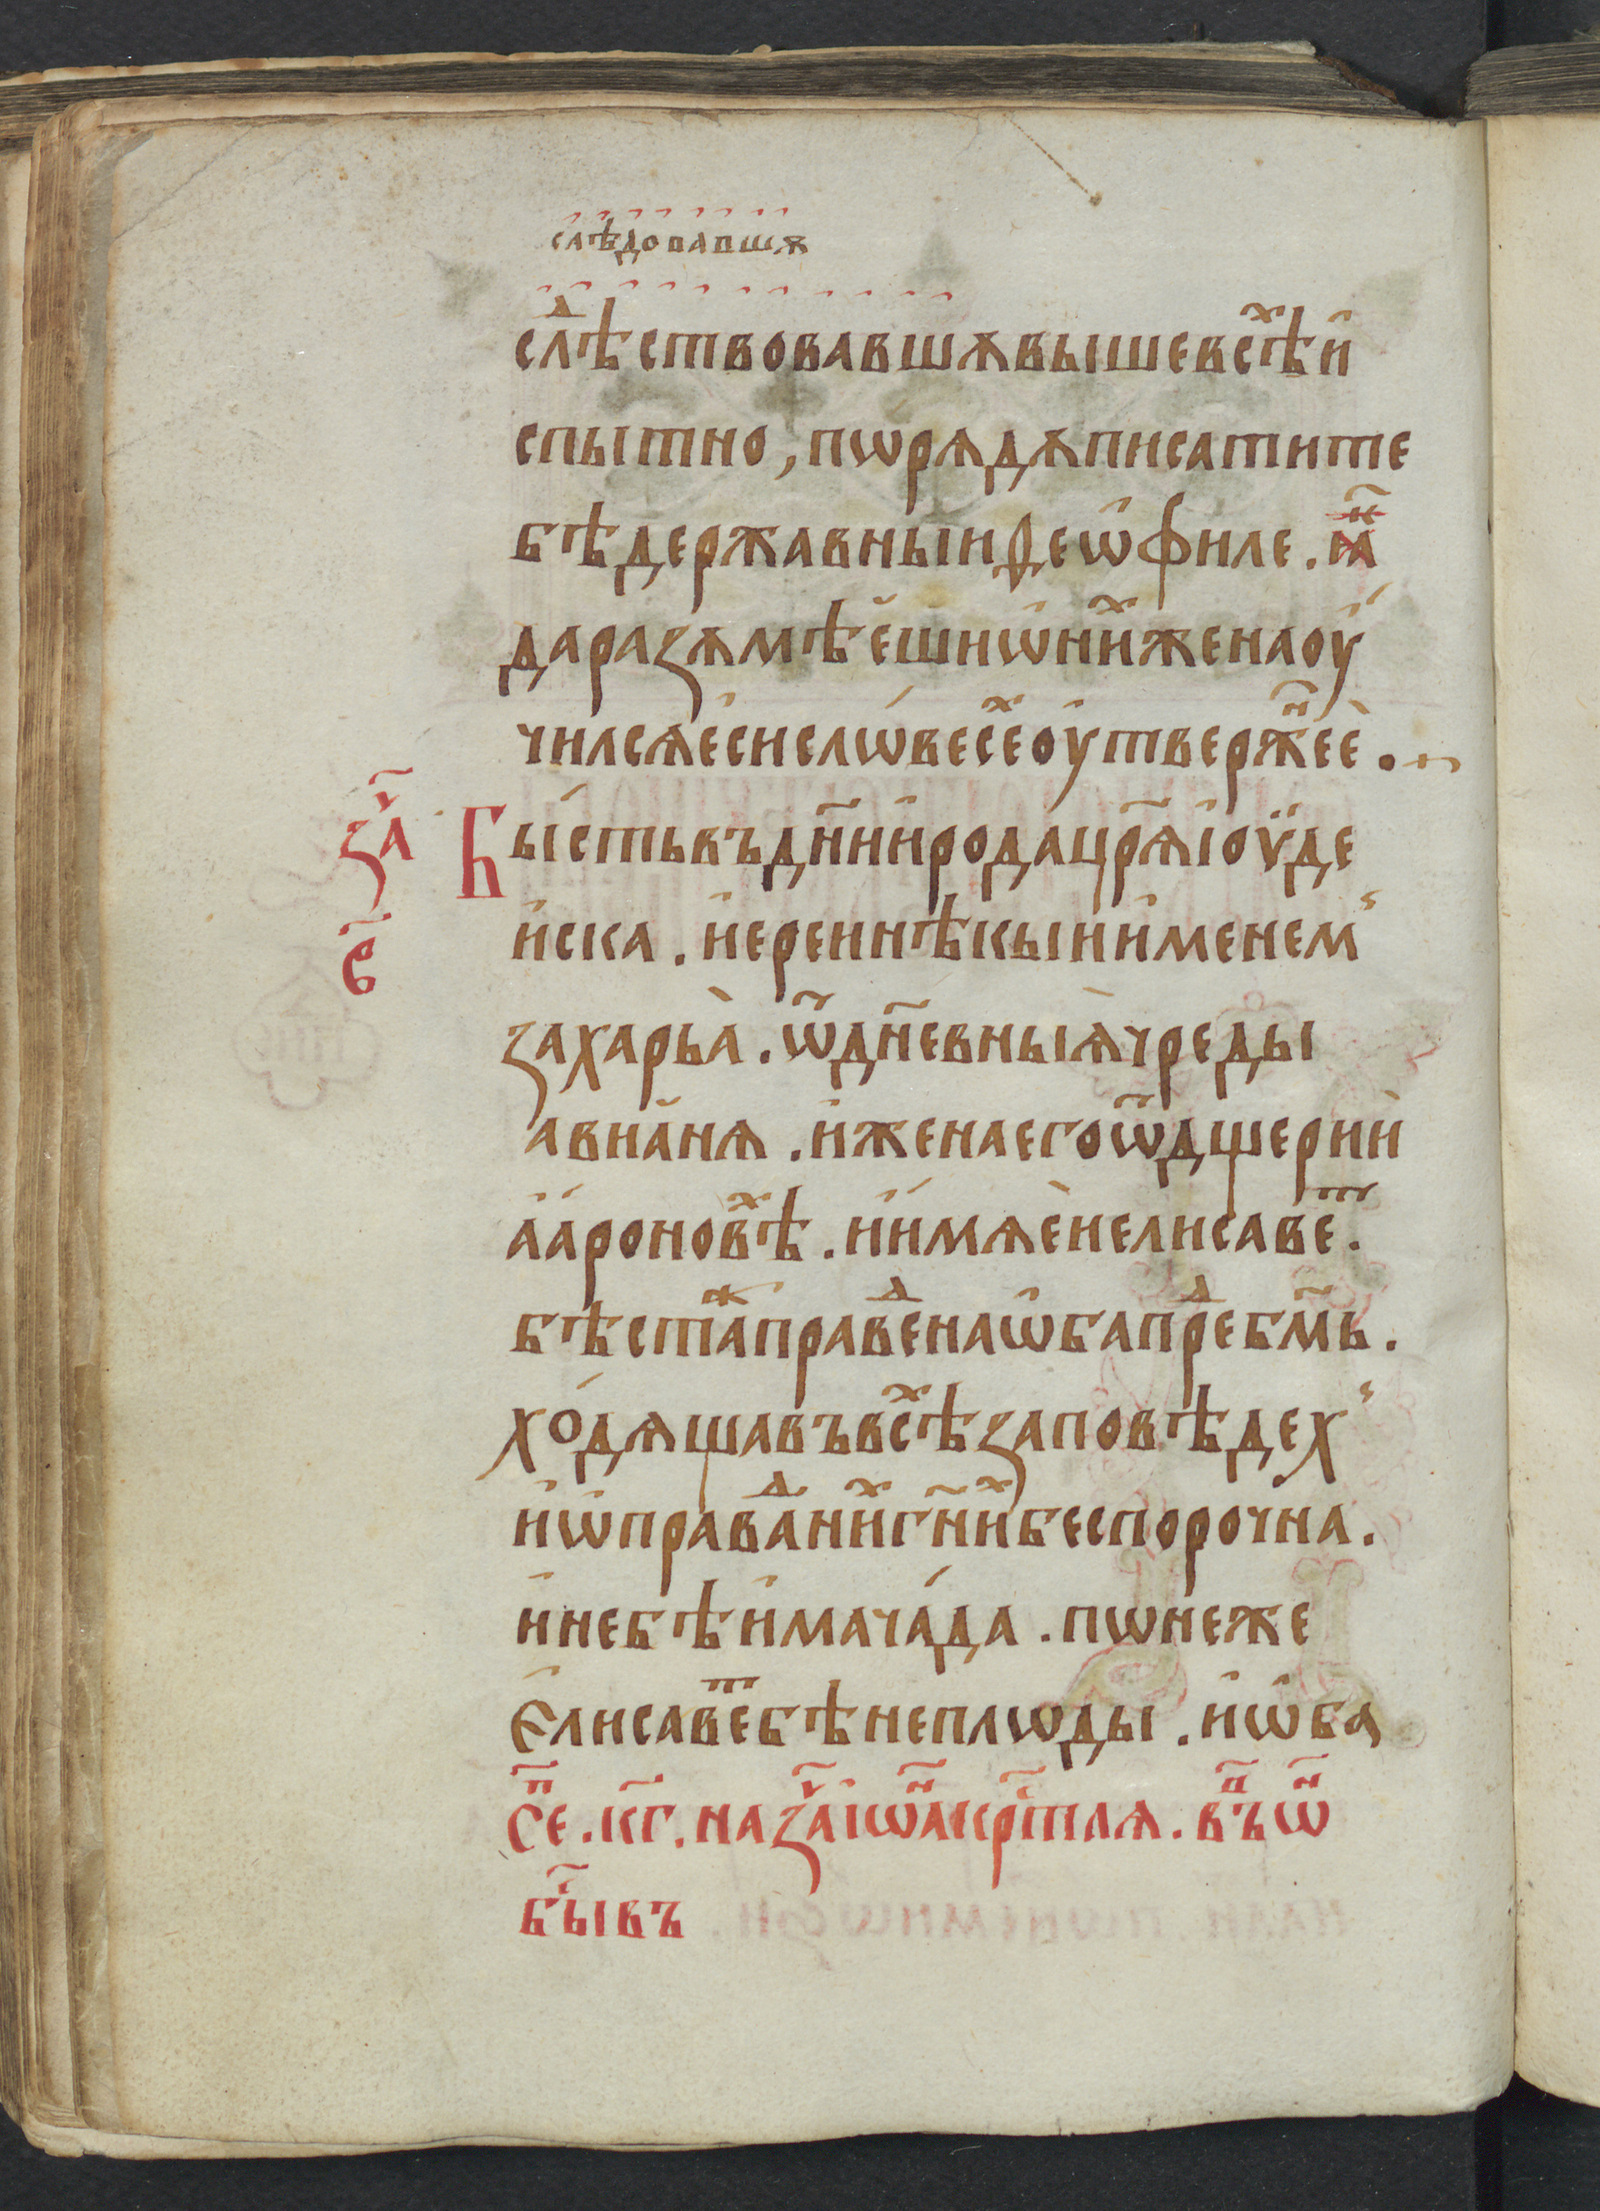 слѣдовавшѫ
слѣⷣствовавшѫ выше всѣⷯ и҆
спытно, пѡрѧдѫ писати те
бѣ державныи ѳеѡ҆филе. коⷩ҇
да разѫмѣе҆ши ѡ҆ ни҆ⷯже наоу҆
чилсѧ е҆си слѡ́весеⷯ оу҆твержеⷩ҇е҆ѐ.
заⷱ҇ Бы́сть въ дн҃и и҆рода цр҃ѧ і҆оӱде
в҃ и҆ска. и҆ереи нѣкыи и҆менем
захарьа̀. ѿ дн҃евныѧ̀ чреды
авиа҆нѧ. и҆ жена его ѿ дщерии҆
а҆а҆роновѣⷯ. и҆ и҆мѧ ѐи елисавеⷮ.
бѣстаⷤ правеⷣна ѡ҆ба преⷣ бм҃ь.
хо́дѧща въ всѣⷯ заповѣдех
и҆ ѡ҆праваⷣни҆ⷯ гн҃и́ⷯ беспорочна.
и не бѣ и҆ма ча́да. пѡнеже
є҆лисавеⷮ бѣ неплѡды. и҆ ѡ҆ба
сеⷫ҇. к҃г. на заⷱ҇ іѡаⷩ҇ крⷭ҇тлѧ. въⷫ҇ ѡⷩ҇
быⷭ҇въ